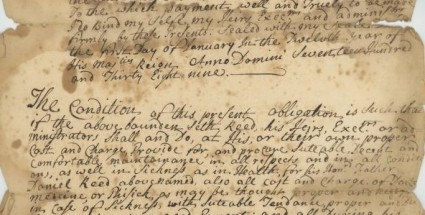 To the which payment well and Truely to
To Bind my Self, my Heirs Execrs and
firmly by these Presents. Sealed with my
the first Day of January In the Twelfth Year of
His Maties Reign Anno Domini Seventeen hundred
and Thirty Eight nine.
The Condition of this present obligation is Such that
if the above bounden Seth Reed, his Heirs, Execrs or ad
ministrators Shall and Do, at His, or their own proper
Cost and Charge Provide for, and procure Suttable Honest and
Comfortable maintainance in all respects, and in all condi
ons, as well in Sickness, as in Health, for his Hond Father
Daniel Reed above Named also all Cost and Charge or Doct
medicine or Phisick, as may be thought proper
in Case of Sickness with Suteable Tendance proper